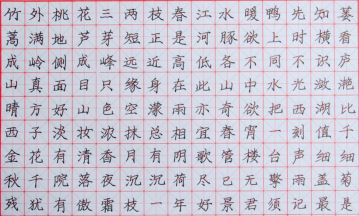 竹外桃花三两枝春江水暖鸭先知蒌
蒿满地芦芽短正是河豚欲上时横看
成岭侧成峰远近高低各不同不识庐
山真面目只缘身在此山中水光潋滟
晴方好山色空濛雨亦奇欲把西湖比
西子淡妆浓抹总相宜春宵一刻值千
金花有清香月有阴歌管楼台声细细
秋千院落夜沉沉荷尽已无擎雨盖菊
残犹有傲霜枝一年好景君须记最是